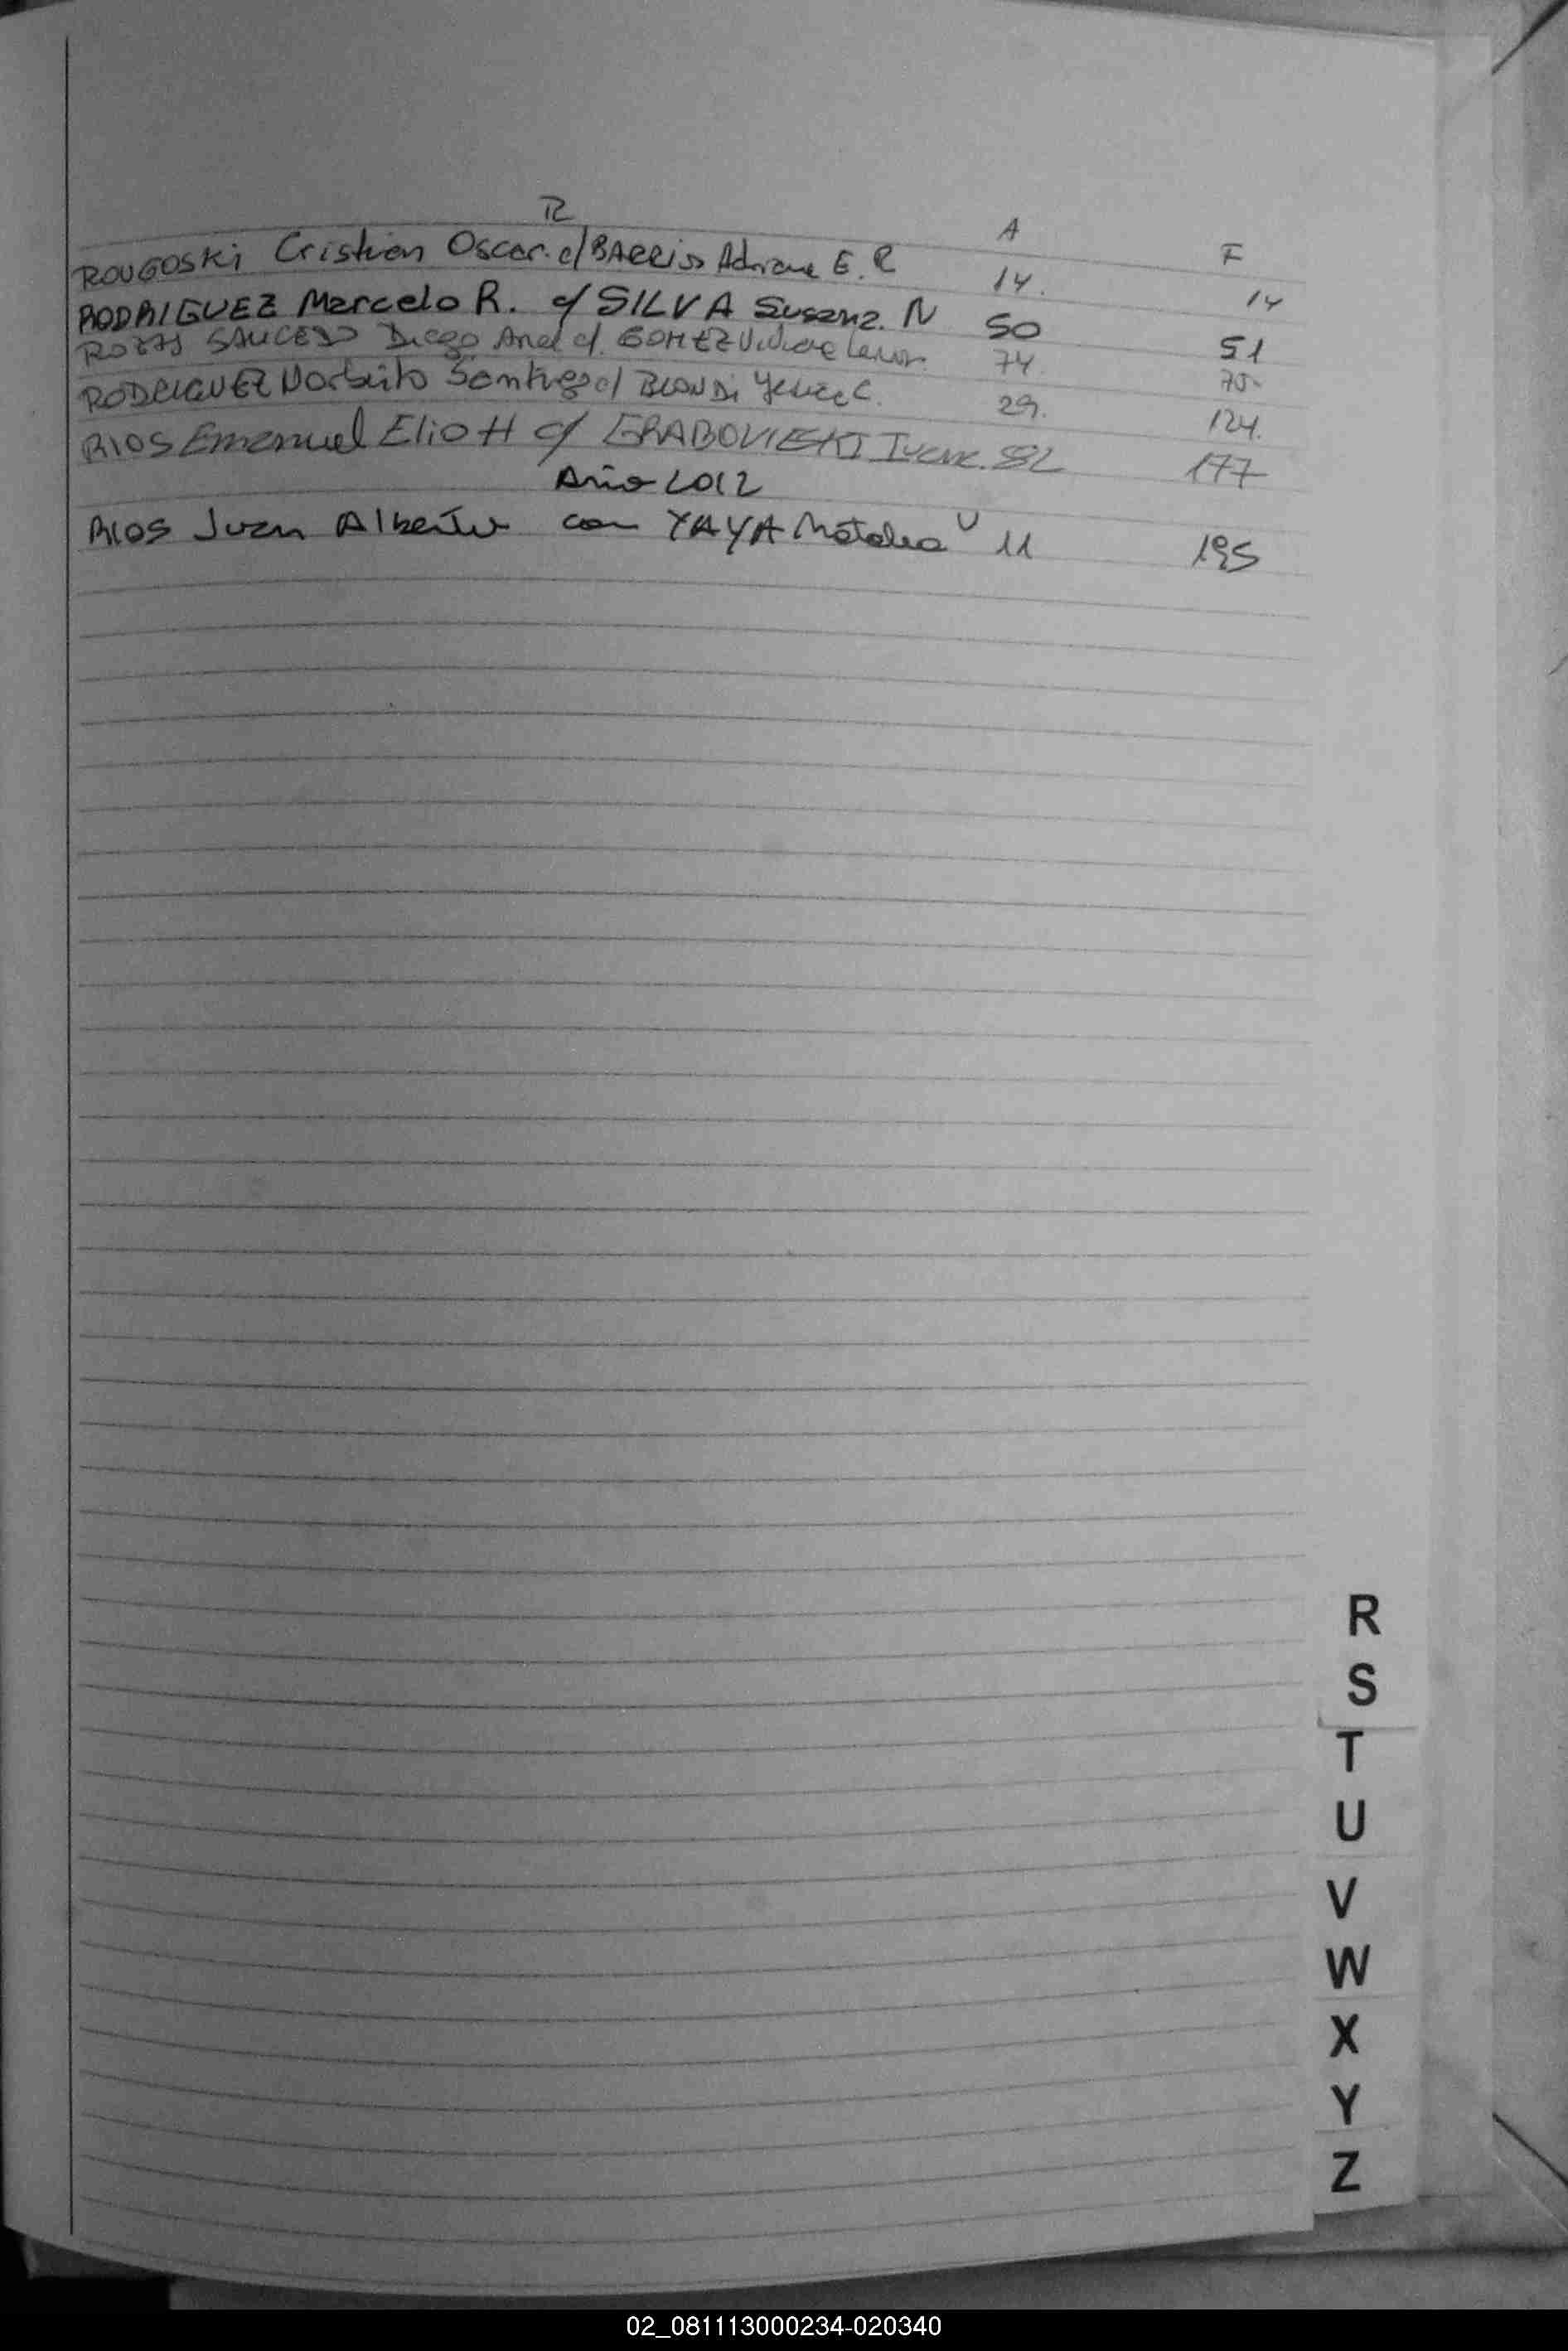 R A F
ROUGOSKI Cristian Oscar. c/ BARRIOS Adriana E. R 14. 14
RODRIGUEZ Marcelo R. c/ SILVA Susana. N 50 51
SAUCEDO Diego c/. GOMEZ 74. 75
RODRIGUEZ Norberto Santiago c/ BLONDI C. 29. 124.
RIOS Emanuel Elio H c/ GRABOVIESKI 82 177
Año 2012
RIOS Juan Alberto con YAYA Natalia V 11 195
R
S
T
U
V
W
X
Y
Z
02_081113000234-020340